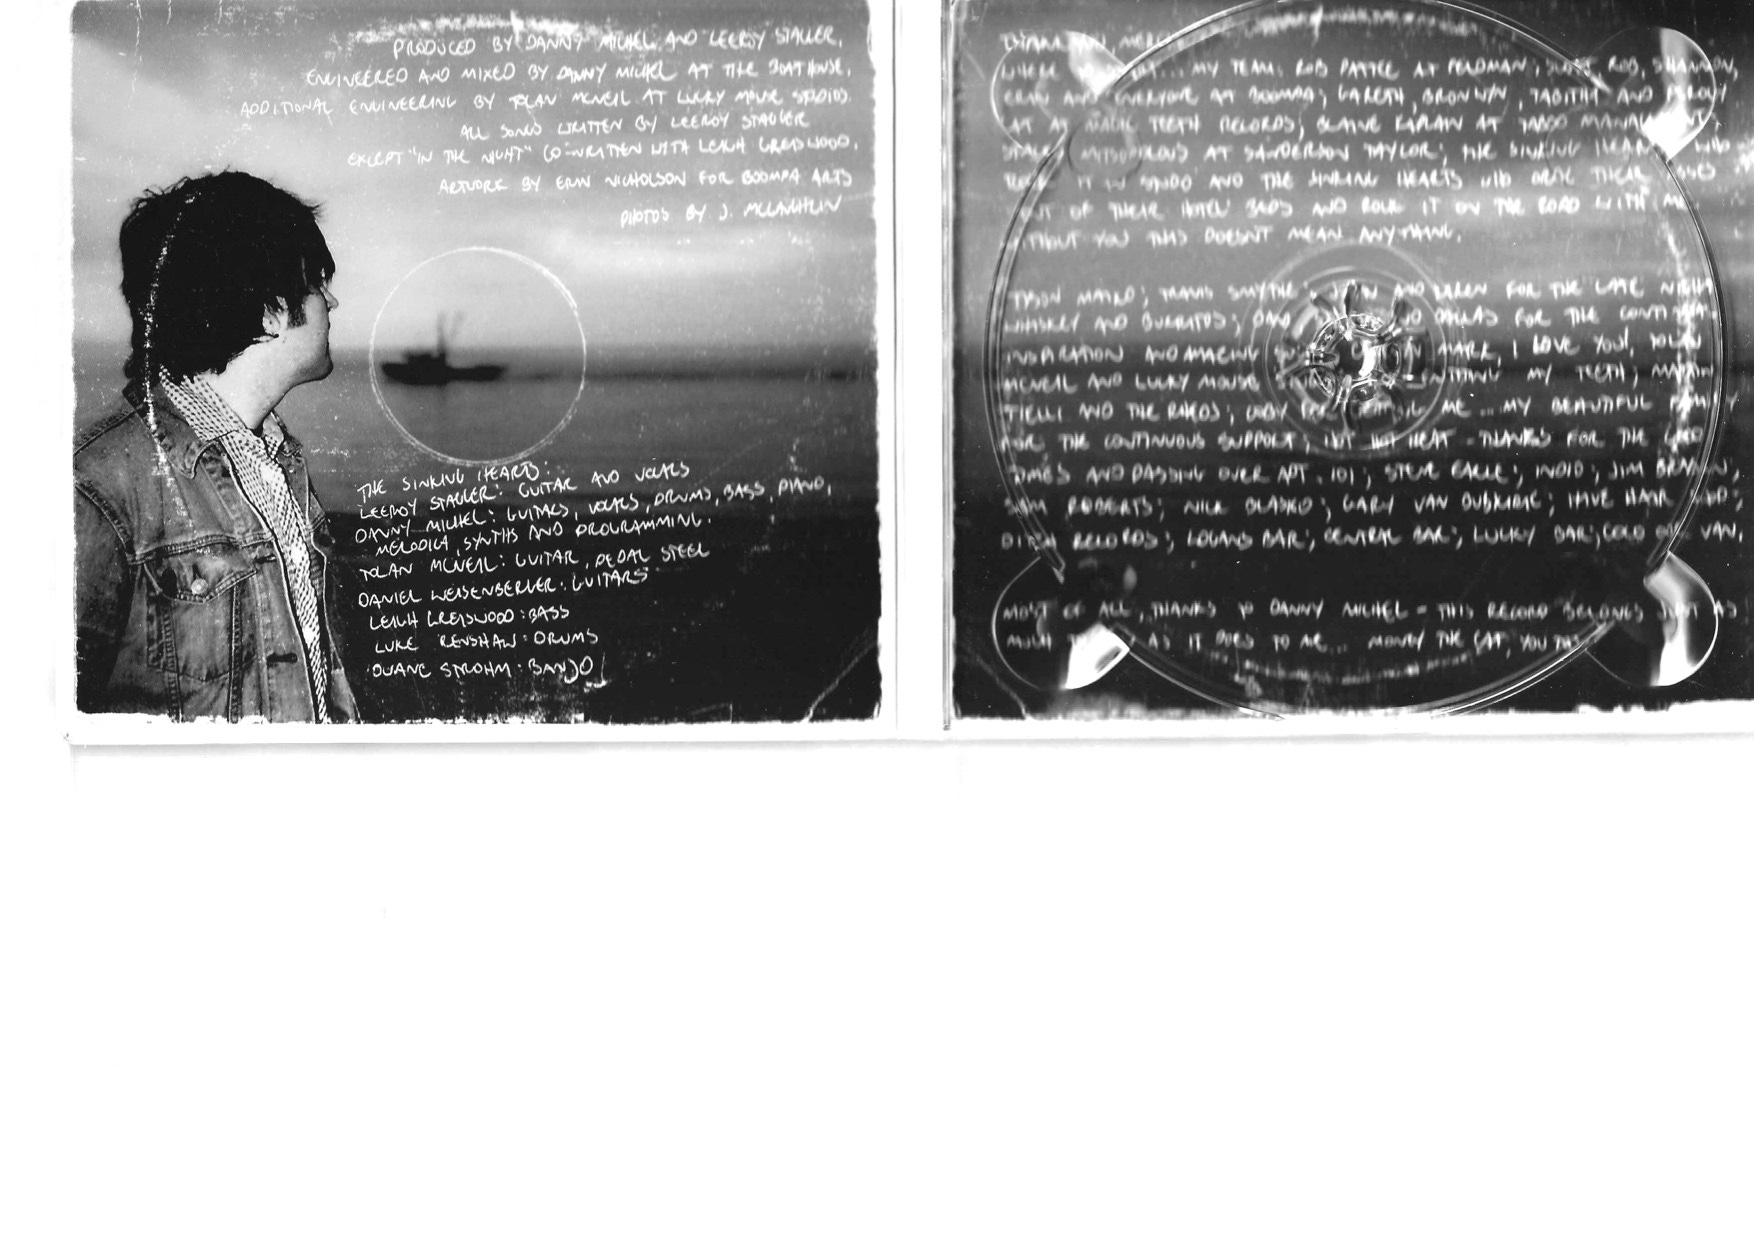 PRODUCED BY DANNY MICHEL AND LEEROY STAGGER,
ENGINEERED AND MIXED BY DANNY MICHEL AT THE BOATHOUSE,
ADDITIONAL ENGINEERING BY TOLAN MCNEIL AT LUCKY MOUSE STUDIOS.
ALL SONGS WRITTEN BY LEEROY STAGGER
EXCEPT "IN THE NIGHT" CO-WRITTEN WITH LEIGH GREISWOOD.
ARTWORK BY ERIN NICHOLSON FOR BOOMPA ARTS
PHOTOS BY J. MCLAUGHLIN
THE SINKING HEARTS:
LEEROY STAGGER: GUITAR AND VOCALS
DANNY MICHEL: GUITARS, VOCALS, DRUMS, BASS, PIANO,
MELODICA, SYNTHS AND PROGRAMMING.
TOLAN MCNEIL: GUITAR, PEDAL STEEL
DANIEL WEISENBERGER: GUITARS
LEIGH GREISWOOD: BASS
LUKE RENSHAW: DRUMS
DUANE STROHM: BANJO
THANK YOU,
WHERE TO START... MY TEAM: ROB PATTEE AT FELDMAN; ROB, SHANNON,
ERAN AND EVERYONE AT BOOMPA; GARETH, BRONWYN, TABITHA AND
AT MAGIC TEETH RECORDS; BLAINE KAPLAN AT
AT SANDERSON TAYLOR; THE SINKING HEARTS WHO
ROCK IT IN STUDIO AND THE SINKING HEARTS WHO DRAG THEIR ASSES
OUT OF THEIR HOTEL BEDS AND ROCK IT ON THE ROAD WITH ME.
WITHOUT YOU THIS DOESN'T MEAN ANYTHING.
TRAVIS SMYTHE; AND FOR THE LATE NIGHT
WHISKEY AND BURRITOS; DALLAS FOR THE CONTINUAL
INSPIRATION AND AMAZING MARK, I LOVE YOU!, TOLAN
MCNEIL AND LUCKY MOUSE MY TEETH; MARTIN
TIELLI AND THE RHEOS; ME... MY BEAUTIFUL FAMILY
FOR THE CONTINUOUS SUPPORT; HOT HOT HEAT - THANKS FOR THE GOOD
TIMES AND PASSING OVER APT. 101; STEVE EARLE; INDIO; JIM BRYSON;
SAM ROBERTS; NICK BLASKO; GARY VAN; HIVE HAIR;
DITCH RECORDS; LOGANS BAR; CENTRAL BAR; LUCKY BAR; GOLD VAN,
MOST OF ALL, THANKS TO DANNY MICHEL - THIS RECORD BELONGS JUST AS
MUCH AS IT DOES TO ME... MONEY THE CAT, YOU